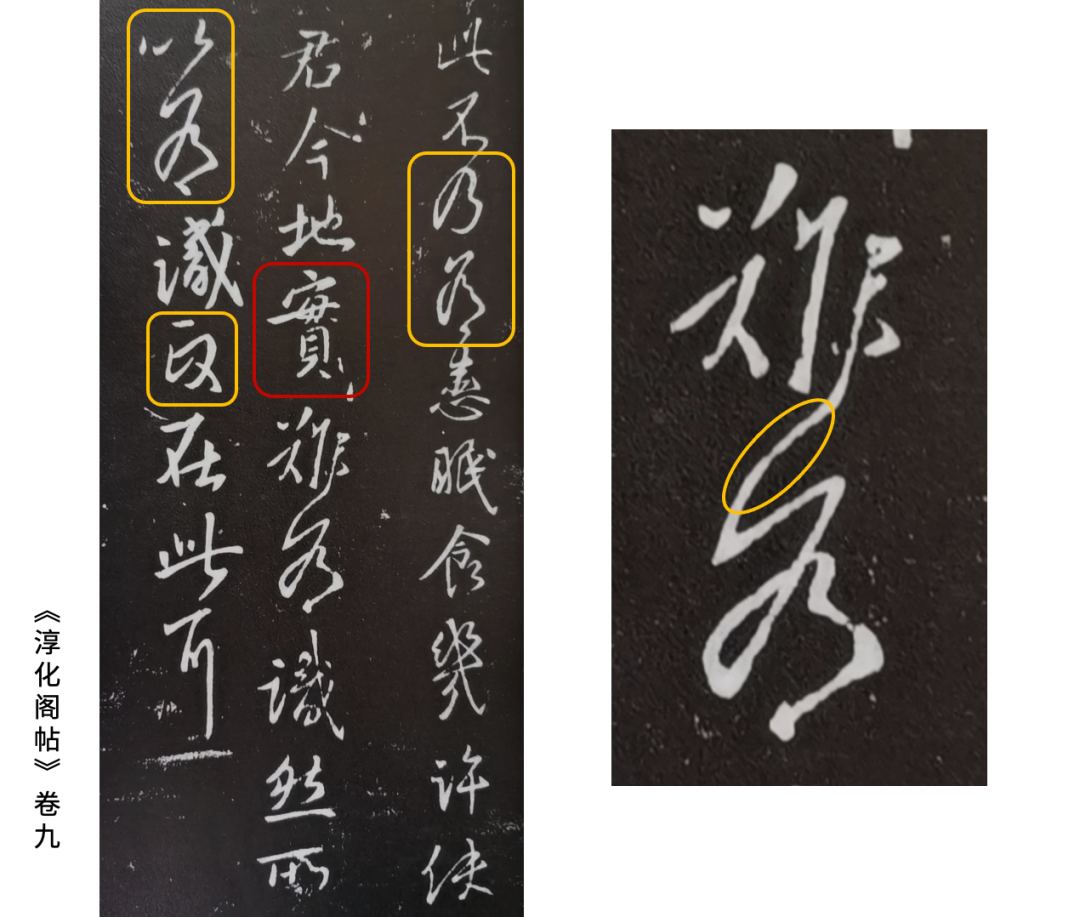 此不乃為恚眠食幾許使
君今地實難為識然所
以為識正在此耳
難為
《淳化阁帖》卷九